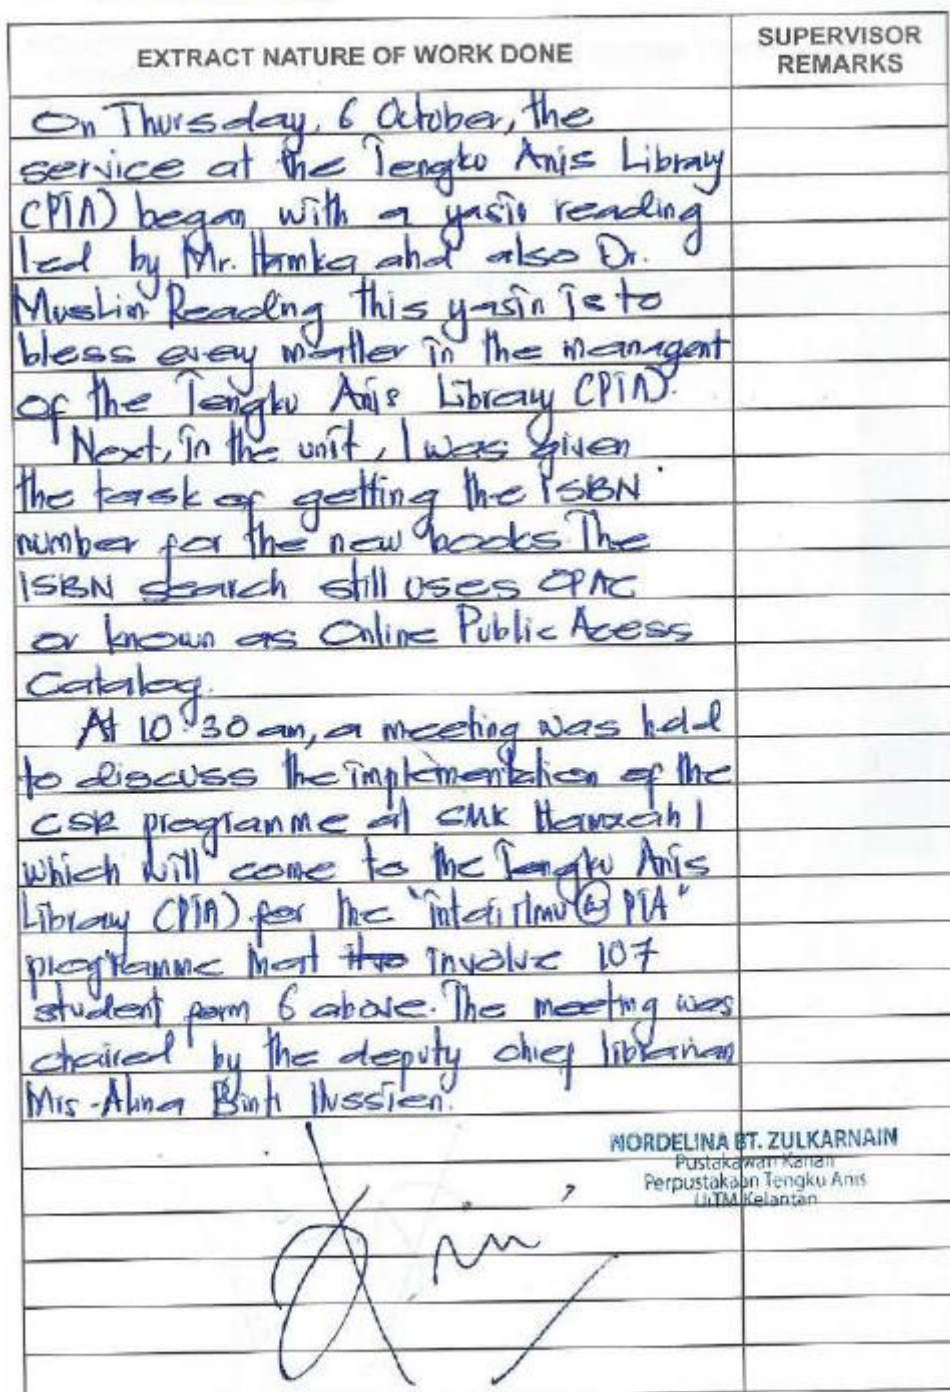 EXTRACT NATURE OF WORK DONE
SUPERVISOR REMARKS
On Thursday, 6 October, the
service at the Tengku Anis Library
(PTA) began with a yasin reading
led by Mr. Hamka and also Dr.
Muslim. Reading this yasin is to
bless every matter in the managent
of the Tengku Anis Library (PTA).
Next, in the unit, I was given
the task of getting the ISBN
number for the new books. The
ISBN search still uses OPAC
or known as Online Public Acess
Catalog.
At 10.30 am, a meeting was held
to discuss the implementation of the
CSR programme at SMK Hamzah 1
which will come to the Tengku Anis
Library (PTA) for the "intai ilmu @ PTA"
programme that involve 107
student form 6 above. The meeting was
chaired by the deputy chief librarian
Mrs. Alina Binti Hussien.
NORDELINA BT. ZULKARNAIN
Pustakawan Kanan
Perpustakaan Tengku Anis
UiTM Kelantan